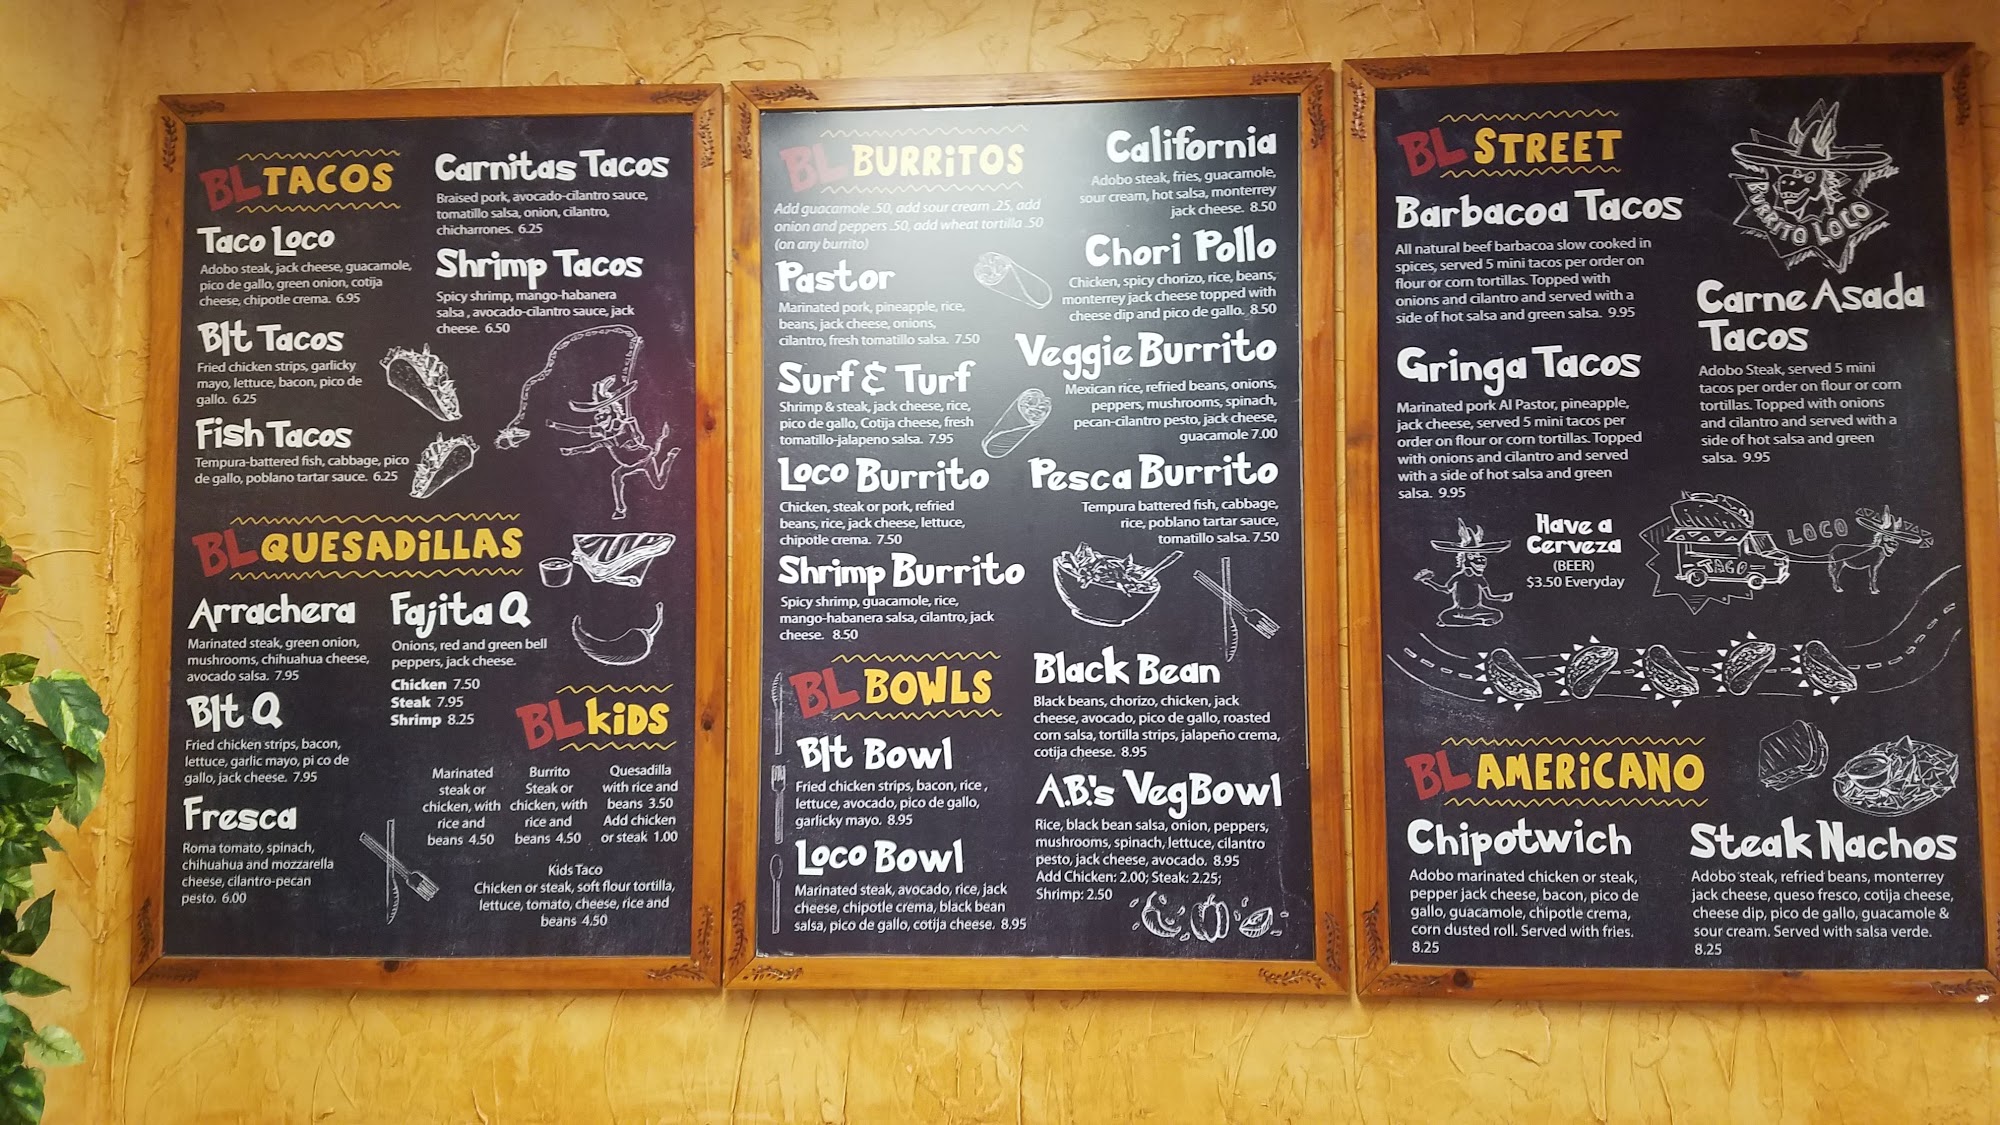 BL TACOS
Taco Loco
Adobo steak, jack cheese, guacamole,
pico de gallo, green onion, cotija
cheese, chipotle crema. 6.95
Blt Tacos
Fried chicken strips, garlicky
mayo, lettuce, bacon, pico de
gallo. 6.25
Fish Tacos
Tempura-battered fish, cabbage, pico
de gallo, poblano tartar sauce. 6.25
Carnitas Tacos
Braised pork, avocado-cilantro sauce,
tomatillo salsa, onion, cilantro,
chicharrones. 6.25
Shrimp Tacos
Spicy shrimp, mango-habanera
salsa , avocado-cilantro sauce, jack
cheese. 6.50
BL QUESADILLAS
Arrachera
Marinated steak, green onion,
mushrooms, chihuahua cheese,
avocado salsa. 7.95
Blt Q
Fried chicken strips, bacon,
lettuce, garlic mayo, pi co de
gallo, jack cheese. 7.95
Fresca
Roma tomato, spinach,
chihuahua and mozzarella
cheese, cilantro-pecan
pesto. 6.00
Fajita Q
Onions, red and green bell
peppers, jack cheese.
Chicken 7.50
Steak 7.95
Shrimp 8.25
BL KIDS
Marinated
steak or
chicken, with
rice and
beans 4.50
Burrito
Steak or
chicken, with
rice and
beans 4.50
Quesadilla
with rice and
beans 3.50
Add chicken
or steak 1.00
Kids Taco
Chicken or steak, soft flour tortilla,
lettuce, tomato, cheese, rice and
beans 4.50
BL BURRITOS
Add guacamole .50, add sour cream .25, add
onion and peppers .50, add wheat tortilla .50
(on any burrito)
Pastor
Marinated pork, pineapple, rice,
beans, jack cheese, onions,
cilantro, fresh tomatillo salsa. 7.50
Surf & Turf
Shrimp & steak, jack cheese, rice,
pico de gallo, Cotija cheese, fresh
tomatillo-jalapeno salsa. 7.95
Loco Burrito
Chicken, steak or pork, refried
beans, rice, jack cheese, lettuce,
chipotle crema. 7.50
Shrimp Burrito
Spicy shrimp, guacamole, rice,
mango-habanera salsa, cilantro, jack
cheese. 8.50
California
Adobo steak, fries, guacamole,
sour cream, hot salsa, monterrey
jack cheese. 8.50
Chori Pollo
Chicken, spicy chorizo, rice, beans,
monterrey jack cheese topped with
cheese dip and pico de gallo. 8.50
Veggie Burrito
Mexican rice, refried beans, onions,
peppers, mushrooms, spinach,
pecan-cilantro pesto, jack cheese,
guacamole 7.00
Pesca Burrito
Tempura battered fish, cabbage,
rice, poblano tartar sauce,
tomatillo salsa. 7.50
BL BOWLS
Blt Bowl
Fried chicken strips, bacon, rice ,
lettuce, avocado, pico de gallo,
garlicky mayo. 8.95
Loco Bowl
Marinated steak, avocado, rice, jack
cheese, chipotle crema, black bean
salsa, pico de gallo, cotija cheese. 8.95
Black Bean
Black beans, chorizo, chicken, jack
cheese, avocado, pico de gallo, roasted
corn salsa, tortilla strips, jalapeño crema,
cotija cheese. 8.95
A.B.'s VegBowl
Rice, black bean salsa, onion, peppers,
mushrooms, spinach, lettuce, cilantro
pesto, jack cheese, avocado. 8.95
Add Chicken: 2.00; Steak: 2.25;
Shrimp: 2.50
BL STREET
Barbacoa Tacos
All natural beef barbacoa slow cooked in
spices, served 5 mini tacos per order on
flour or corn tortillas. Topped with
onions and cilantro and served with a
side of hot salsa and green salsa. 9.95
Gringa Tacos
Marinated pork Al Pastor, pineapple,
jack cheese, served 5 mini tacos per
order on flour or corn tortillas. Topped
with onions and cilantro and served
with a side of hot salsa and green
salsa. 9.95
BURRITO LOCO
Carne Asada
Tacos
Adobo Steak, served 5 mini
tacos per order on flour or corn
tortillas. Topped with onions
and cilantro and served with a
side of hot salsa and green
salsa. 9.95
Have a
Cerveza
(BEER)
$3.50 Everyday
TACO
LOCO
BL AMERICANO
Chipotwich
Adobo marinated chicken or steak,
pepper jack cheese, bacon, pico de
gallo, guacamole, chipotle crema,
corn dusted roll. Served with fries.
8.25
Steak Nachos
Adobo steak, refried beans, monterrey
jack cheese, queso fresco, cotija cheese,
cheese dip, pico de gallo, guacamole &
sour cream. Served with salsa verde.
8.25